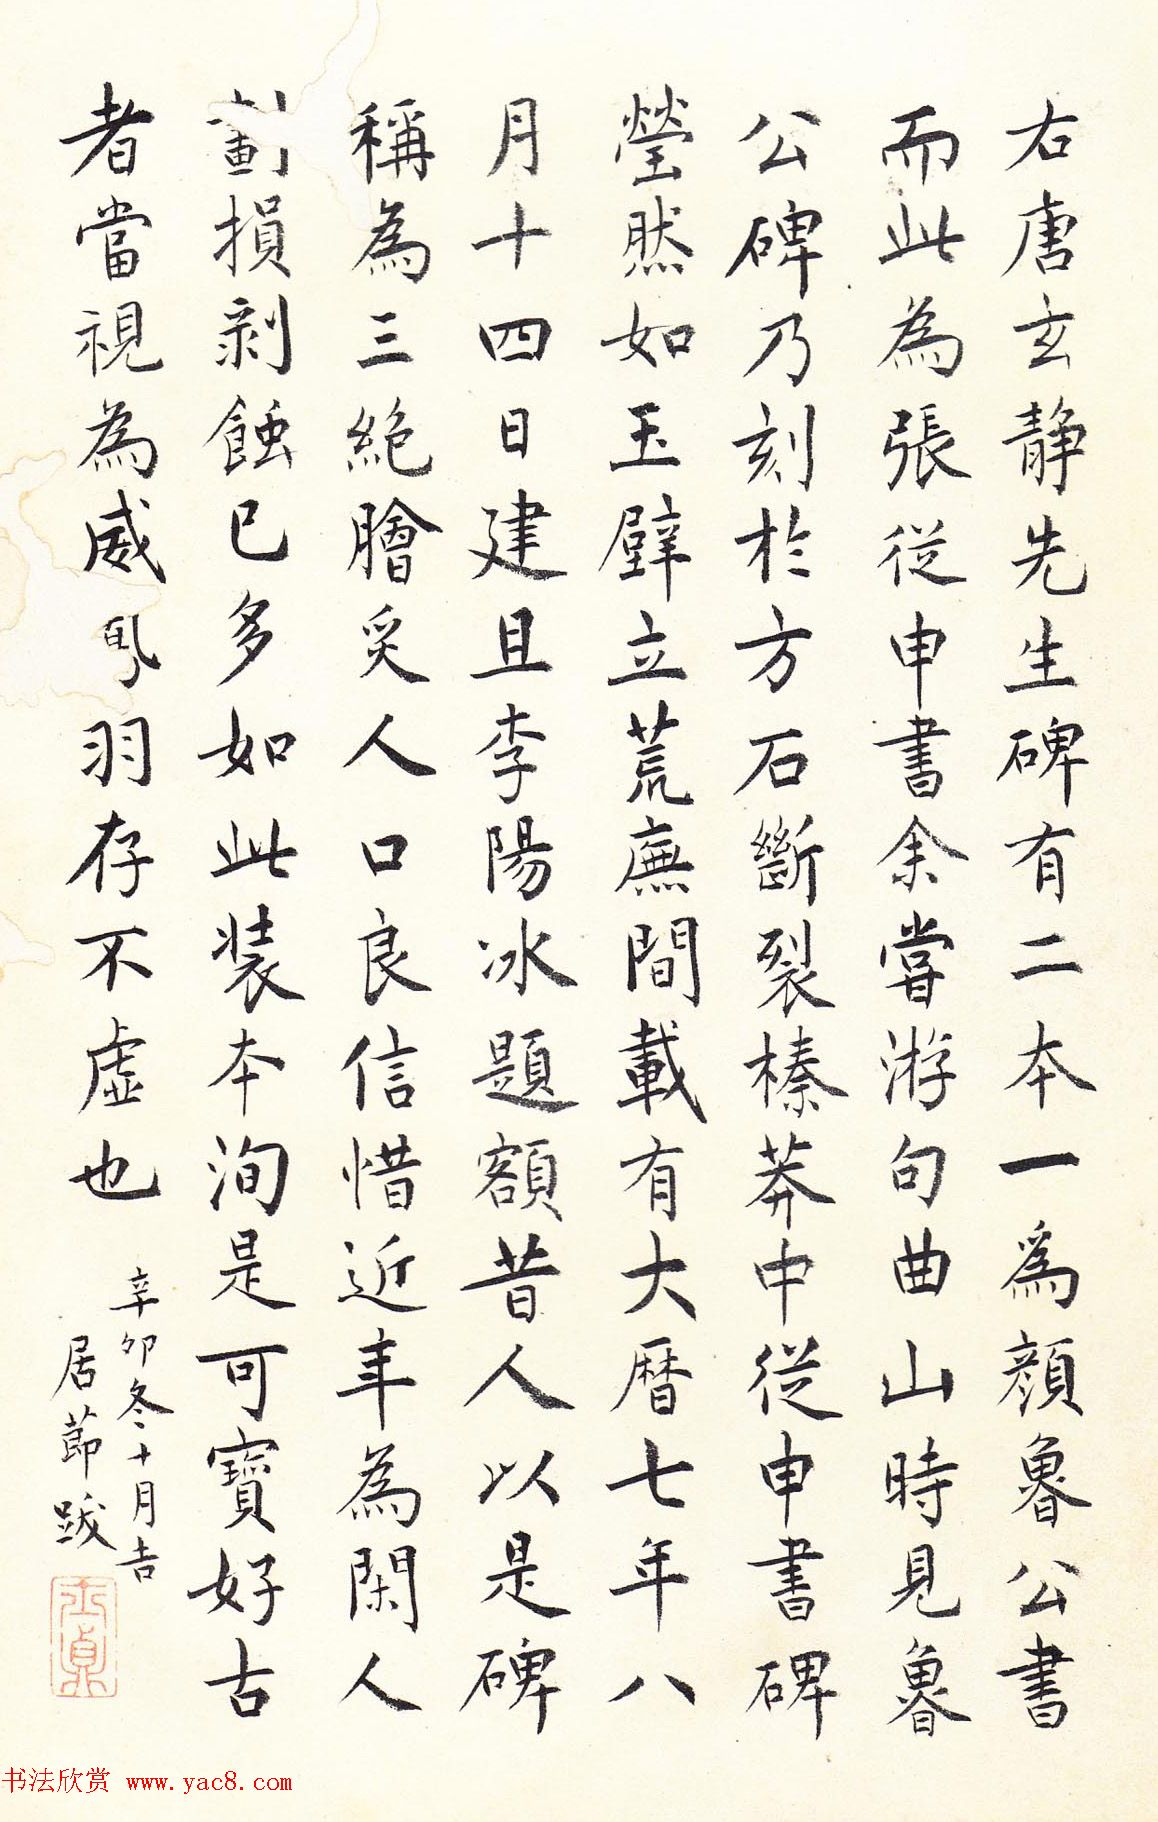 右唐玄靜先生碑有二本一為顏魯公書
而此為張從申書余嘗游句曲山時見魯
公碑乃刻於方石斷裂榛莽中從申書碑
瑩然如玉壁立荒廡間載有大曆七年八
月十四日建且李陽冰題額昔人以是碑
稱為三絕膾炙人口良信惜近年為閑人
劃損剥蝕已多如此装本洵是可寶好古
者當視為威鳳羽存不虛也
辛卯冬十月吉
居節跋
士貞
书法欣赏 www.yac8.com